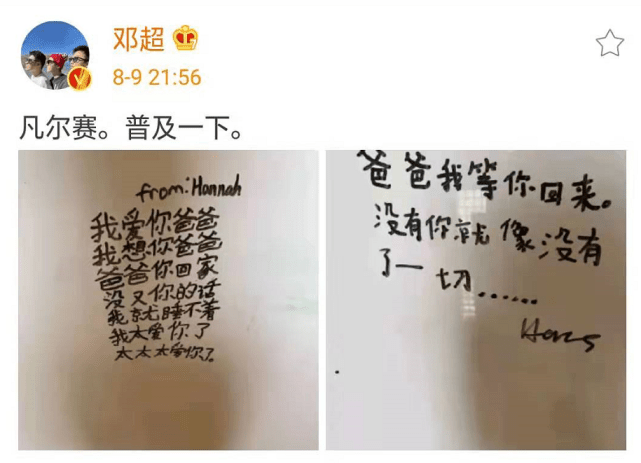 邓超
8-9 21:56
凡尔赛。普及一下。
from:Hannah
我爱你爸爸
我想你爸爸
爸爸你回家
没又你的话
我就睡不着
我太爱你了
太太太爱你了。
爸爸我等你回来。
没有你就像没有
了一切……